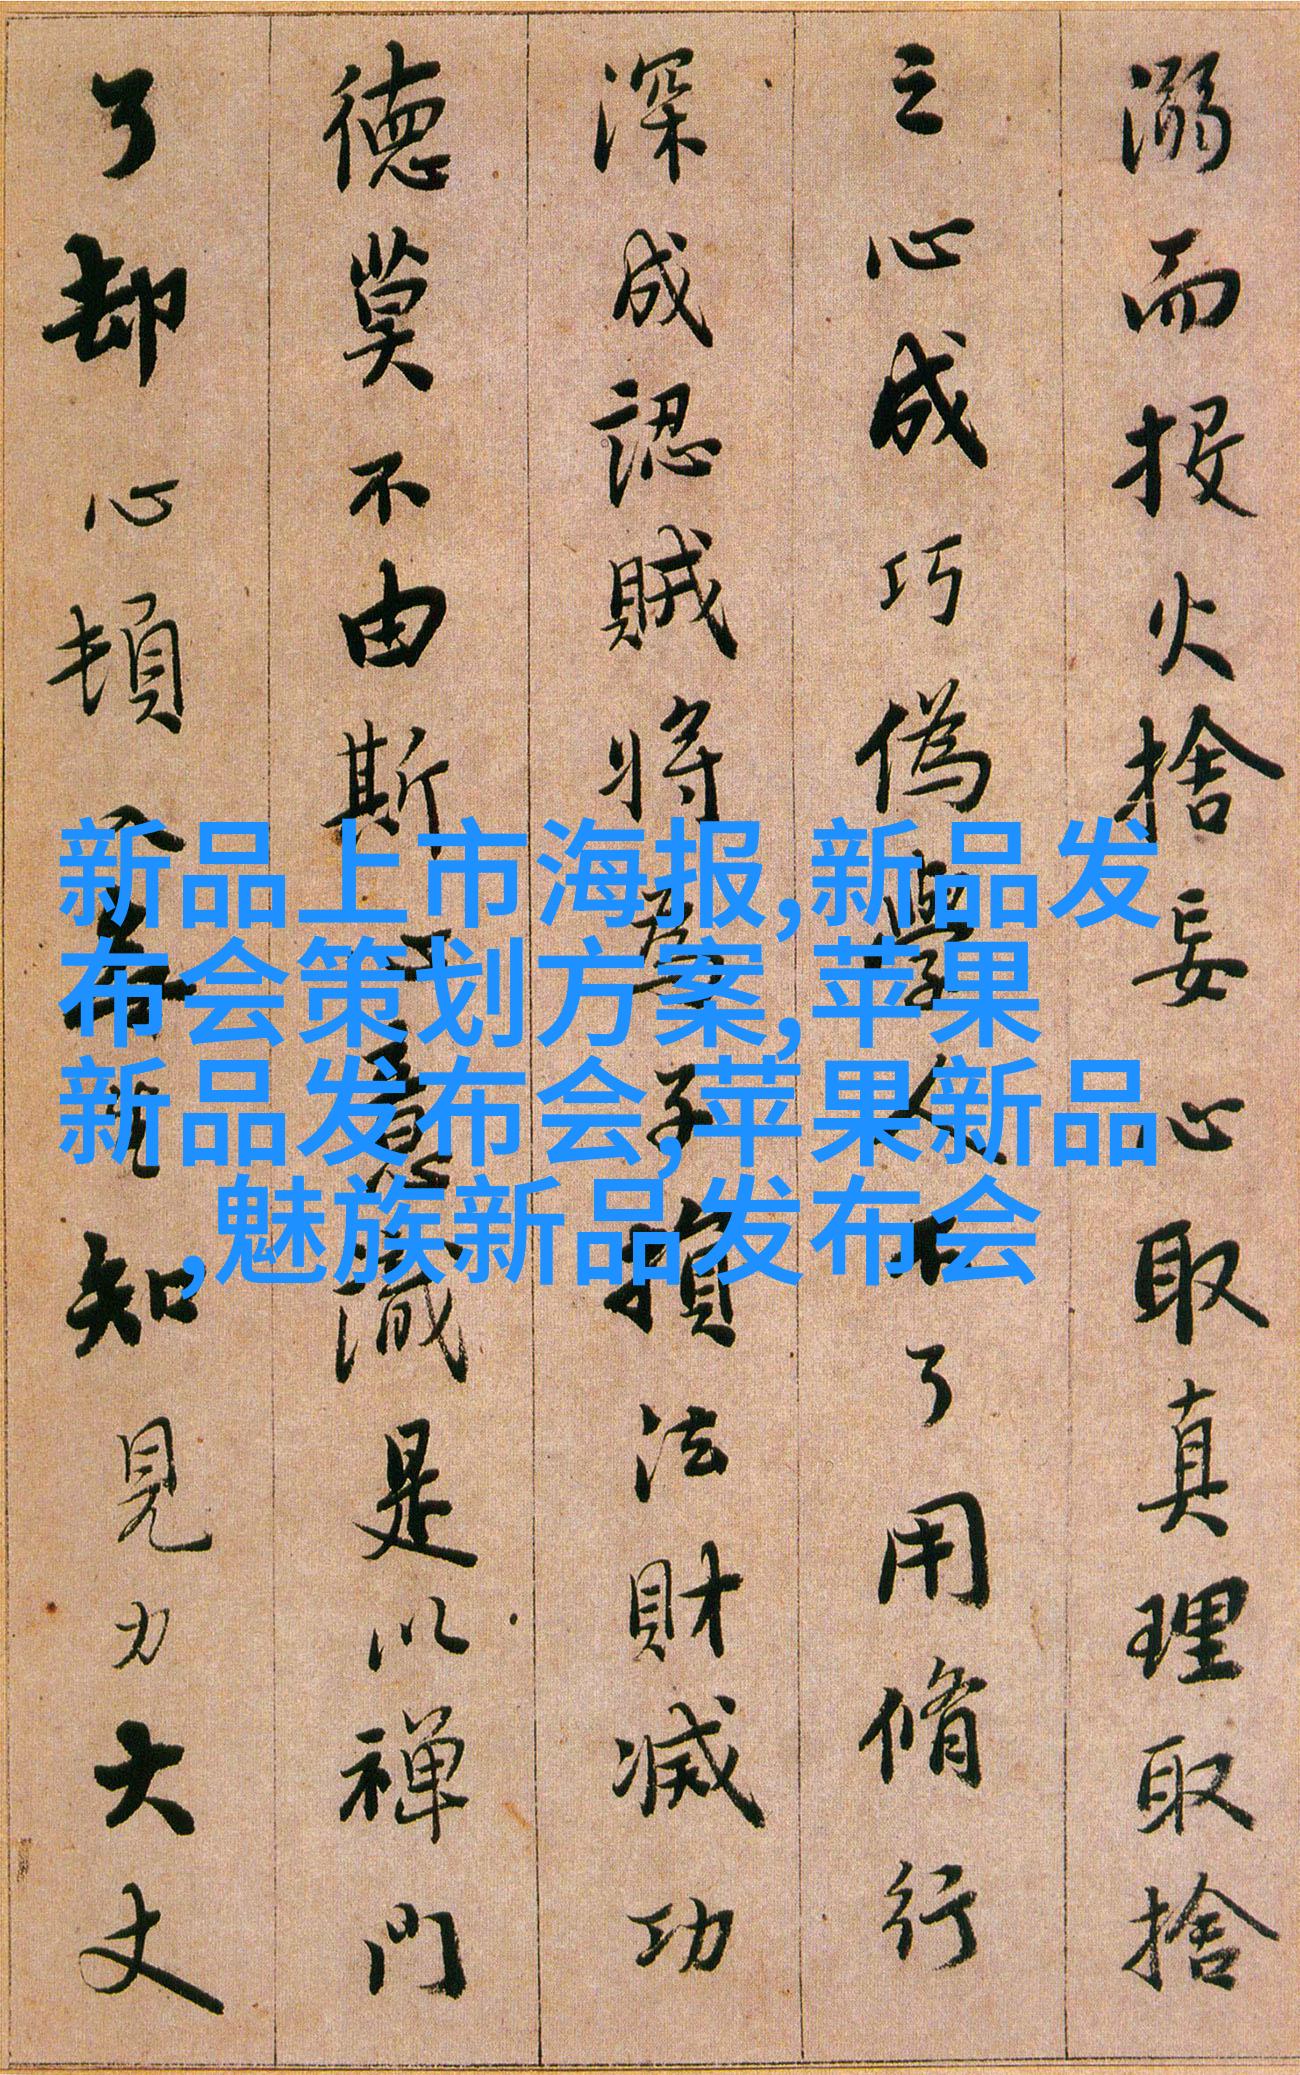 溺而投火捨妄心取真理取捨
之心成巧偽學人不了用脩行
深成認賊將為子損法財滅功
德莫不由斯意識是以禪門
了却心頓入知見力大丈
新品上市海报,新品发
布会策划方案,苹果
新品发布会,苹果新品
,魅族新品发布会